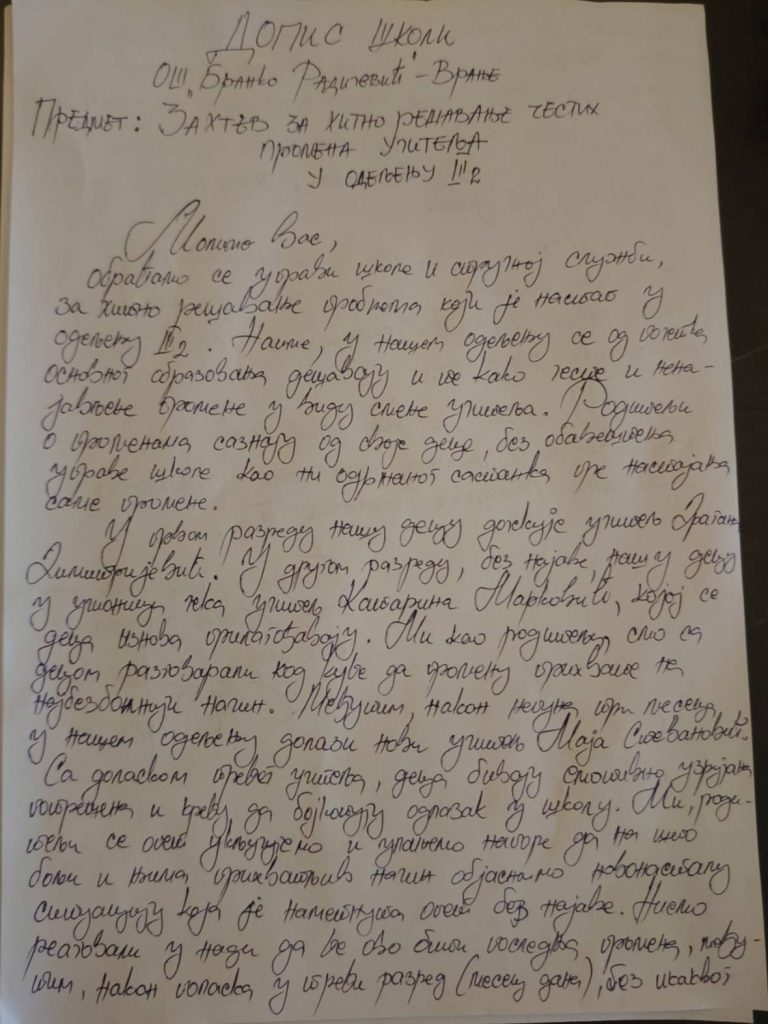 Допис школи
ОШ „Бранко Радичевић" - Врање
Предмет: Захтев за хитно решавање честих
промена учитеља
у одељењу III2
Молимо Вас,
обраћамо се управи школе и стручној служби,
за хитно решавање проблема који је настао у
одељењу III2. Наиме, у нашем одељењу се од почетка
основног образовања дешавају и те како честе и нена-
јављене промене у виду смене учитеља. Родитељи
о променама сазнају од своје деце, без обавештења
управе школе као ни одржаног састанка пре настајања
саме промене.
У првом разреду нашу децу дочекује учитељ Драган
Димитријевић. У другом разреду, без најаве, нашу децу
у учионици чека учитељ Катарина Марковић, којој се
деца изнова прилагођавају. Ми као родитељи, смо са
децом разговарали код куће да промену прихвате на
најбезболнији начин. Међутим, након непуна три месеца,
у нашем одељењу долази нови учитељ Маја Стевановић.
Са доласком трећег учитеља, деца бивају емотивно узрујана
потрешена и крећу да бојкотују одлазак у школу. Ми, роди-
тељи се опет укључујемо и улажемо напоре да на што
бољи и њима прихватљив начин објаснимо новонасталу
ситуацију која је наметнута опет без најаве. Нисмо
реаговали у нади да ће ово бити последња промена, међу-
тим, након поласка у трећи разред (месец дана), без икаквог